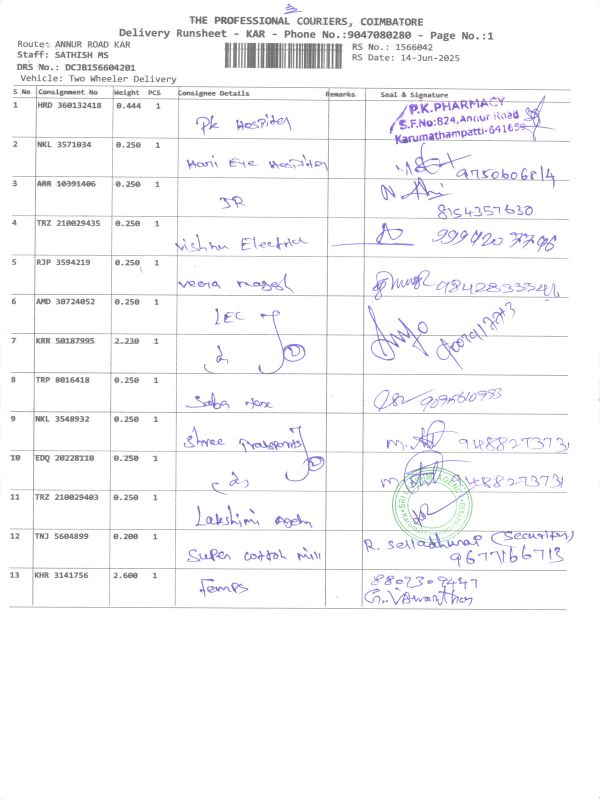 3
THE PROFESSIONAL COURIERS, COIMBATORE
Delivery Runsheet - KAR - Phone No.:9047080280 - Page No.:1
Route: ANNUR ROAD KAR
RS No.: 1566042
Staff: SATHISH MS
RS Date: 14-Jun-2025
DRS No.: DCJB156604201
Vehicle: Two Wheeler Delivery
S No Consignment No Weight PCS Consignee Details Remarks Seal & Signature
1 HRD 360132418 0.444 1
P.K.PHARMACY
S.F.No:824,Annur Road
Karumathampatti-641659
Pk Hospital
2 NKL 3571034 0.250 1
Hari Eye Hospital 9750606814
3 ARR 10391406 0.250 1
JR
8154357630
4 TRZ 210029435 0.250 1
Vishnu Electrical 9994207796
5 RJP 3594219 0.250 1
Veera magesh
6 AMD 30724052 0.250 1
LEC
7 KRR 50187995 2.230 1
2
8 TRP 8016418 0.250 1
Saba
9 NKL 3548932 0.250 1
Shree Transports 9488273731
10 EDQ 20228110 0.250 1
2
9488273731
11 TRZ 210029403 0.250 1
Lakshimi
12 TNJ 5604899 0.200 1
Super cotton mill R. Selladhurai (Security)
9677166713
13 KHR 3141756 2.600 1
Femps